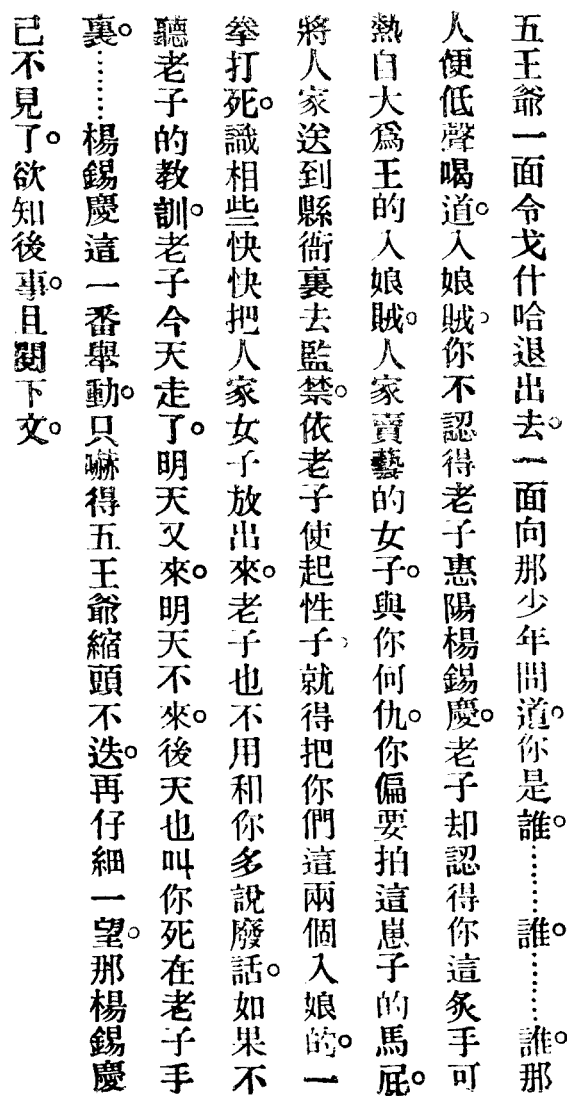 五王爺一面令戈什哈退出去。一面向那少年問道。你是誰。………誰。………誰。那
人便低聲喝道。入娘賊。你不認得老子惠陽楊錫慶。老子却認得你這炙手可
熱自大爲王的入娘賊。人家賣藝的女子。與你何仇。你偏要拍這崽子的馬屁。
將人家送到縣衙裏去監禁。依老子使起性子、就得把你們這兩個入娘的。一
拳打死。識相些快快把人家女子放出來。老子也不用和你多說廢話。如果不
聽老子的教訓。老子今天走了。明天又來。明天不來。後天也叫你死在老子手
裏。……楊錫慶這一番舉動。只嚇得五王爺縮頭不迭。再仔細一望。那楊錫慶
已不見了。欲知後事。且閱下文。